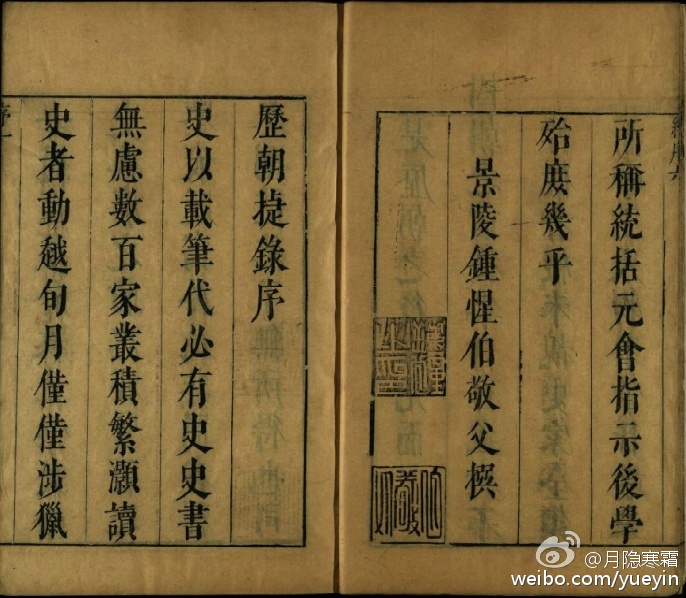 所稱統括元會指示後學
殆庶幾乎
景陵鍾惺伯敬父撰
鍾惺之印
伯敬父
歷朝捷錄序
史以載筆代必有史史書
無慮數百家叢積繁灝讀
史者動越旬月僅僅涉獵
@月隐寒霜
weibo.com/yueyin